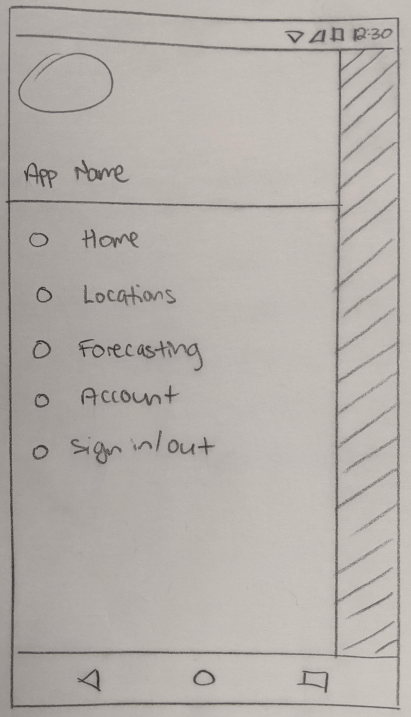 12:30
App Name
Home
Locations
Forecasting
Account
Sign in/out